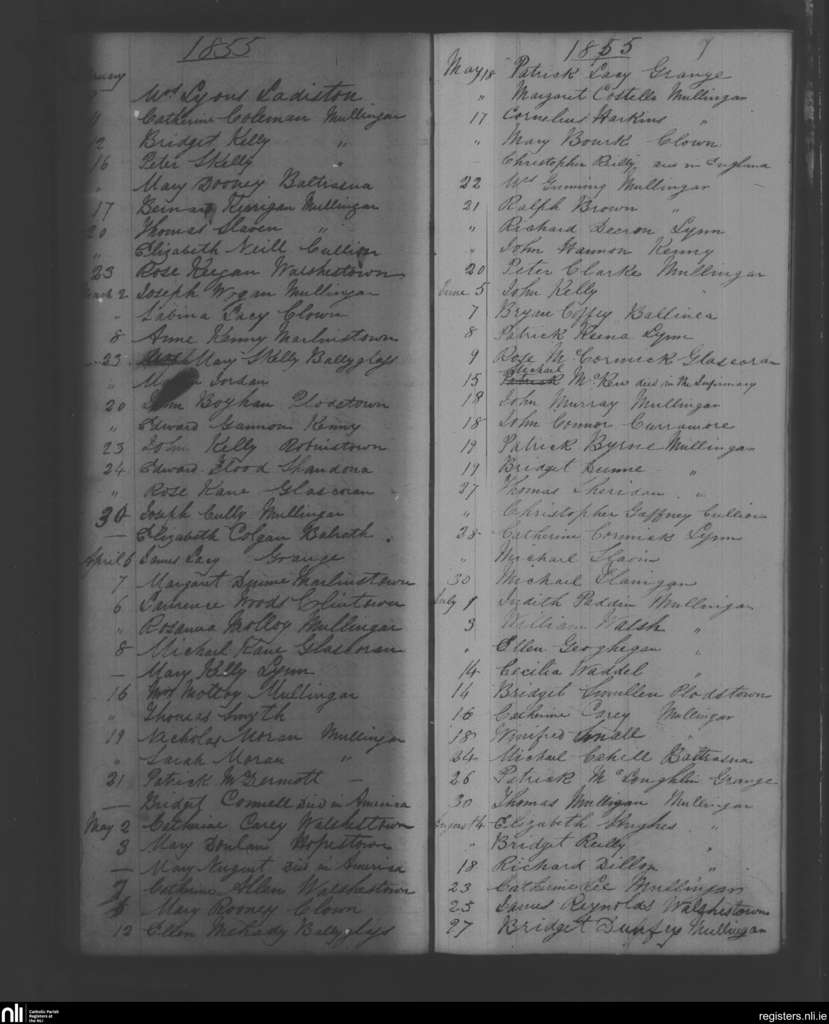 1855
Mrs Lyons Ladiston
11 Catherine Coleman Mullingar
12 Bridget Kelly "
16 Peter Skelly "
" Mary Dooney Baltrasna
17 Bernard Kerrigan Mullingar
20 Thomas Slaven "
" Elizabeth Neill Cullion
23 Rose Keegan Walshestown
2 Joseph Wogan Mullingar
" Sabina Lacy Clown
8 Anne Kenny Marlinstown
23 Mary Skelly Ballyglass
" Jordan
20 John Boyhan Plodstown
" Edward Gannon Kenny
23 John Kelly Robinstown
24 Edward Flood Shandona
" Rose Kane Glascoran
30 Joseph Cully Mullingar
— Elizabeth Colgan Balrath
April 6 James Lacy Grange
7 Margaret Dunne Marlinstown
6 Laurence Woods Clintown
" Rosanna Molloy Mullingar
8 Michael Kane Glascoran
— Mary Kelly Lynn
16 Mrs Molloy Mullingar
" Thomas Smyth
19 Nicholas Moran Mullingar
" Sarah Moran "
21 Patrick McDermott —
— Bridget Connell died in America
May 2 Catherine Carey Walshestown
3 Mary Donlan Hopestown
— Mary Nugent died in America
7 Catherine Allen Walshestown
8 Mary Rooney Clown
12 Ellen McKady Ballyglass
1855 7
May 18 Patrick Lacy Grange
" Margaret Costello Mullingar
17 Cornelius Harkins "
" Mary Bourk Clown
Christopher Reilly died in England
22 Mrs Gunning Mullingar
21 Ralph Brown "
" Richard Deeron Lynn
" John Hannon Kenny
20 Peter Clarke Mullingar
June 5 John Kelly "
7 Bryan Coffey Ballinea
8 Patrick Keena Lynn
9 Rose McCormick Glascoran
Michael
15 Patrick McKew died in the Infirmary
18 John Murray Mullingar
18 John Connor Curramore
19 Patrick Byrne Mullingar
19 Bridget Dunne "
27 Thomas Sheridan "
" Christopher Gaffney Cullion
28 Catherine Cormick Lynn
" Michael Slavin
30 Michael Flanigan
July 1 Judith Paddin Mullingar
3 William Walsh "
" Ellen Geoghegan "
14 Cecilia Waddel "
14 Bridget Cunullen Plodstown
16 Catherine Carey Mullingar
18 Winifred Small "
24 Michael Cahill Baltrasna
26 Patrick McLoughlin Grange
30 Thomas Mulligan Mullingar
August 14 Elizabeth Hughes "
" Bridget Reilly "
18 Richard Dillon "
23 Catherine Lee Mullingar
25 James Reynolds Walshestown
27 Bridget Dunfy Mullingar
nli Catholic Parish Registers at the NLI
registers.nli.ie